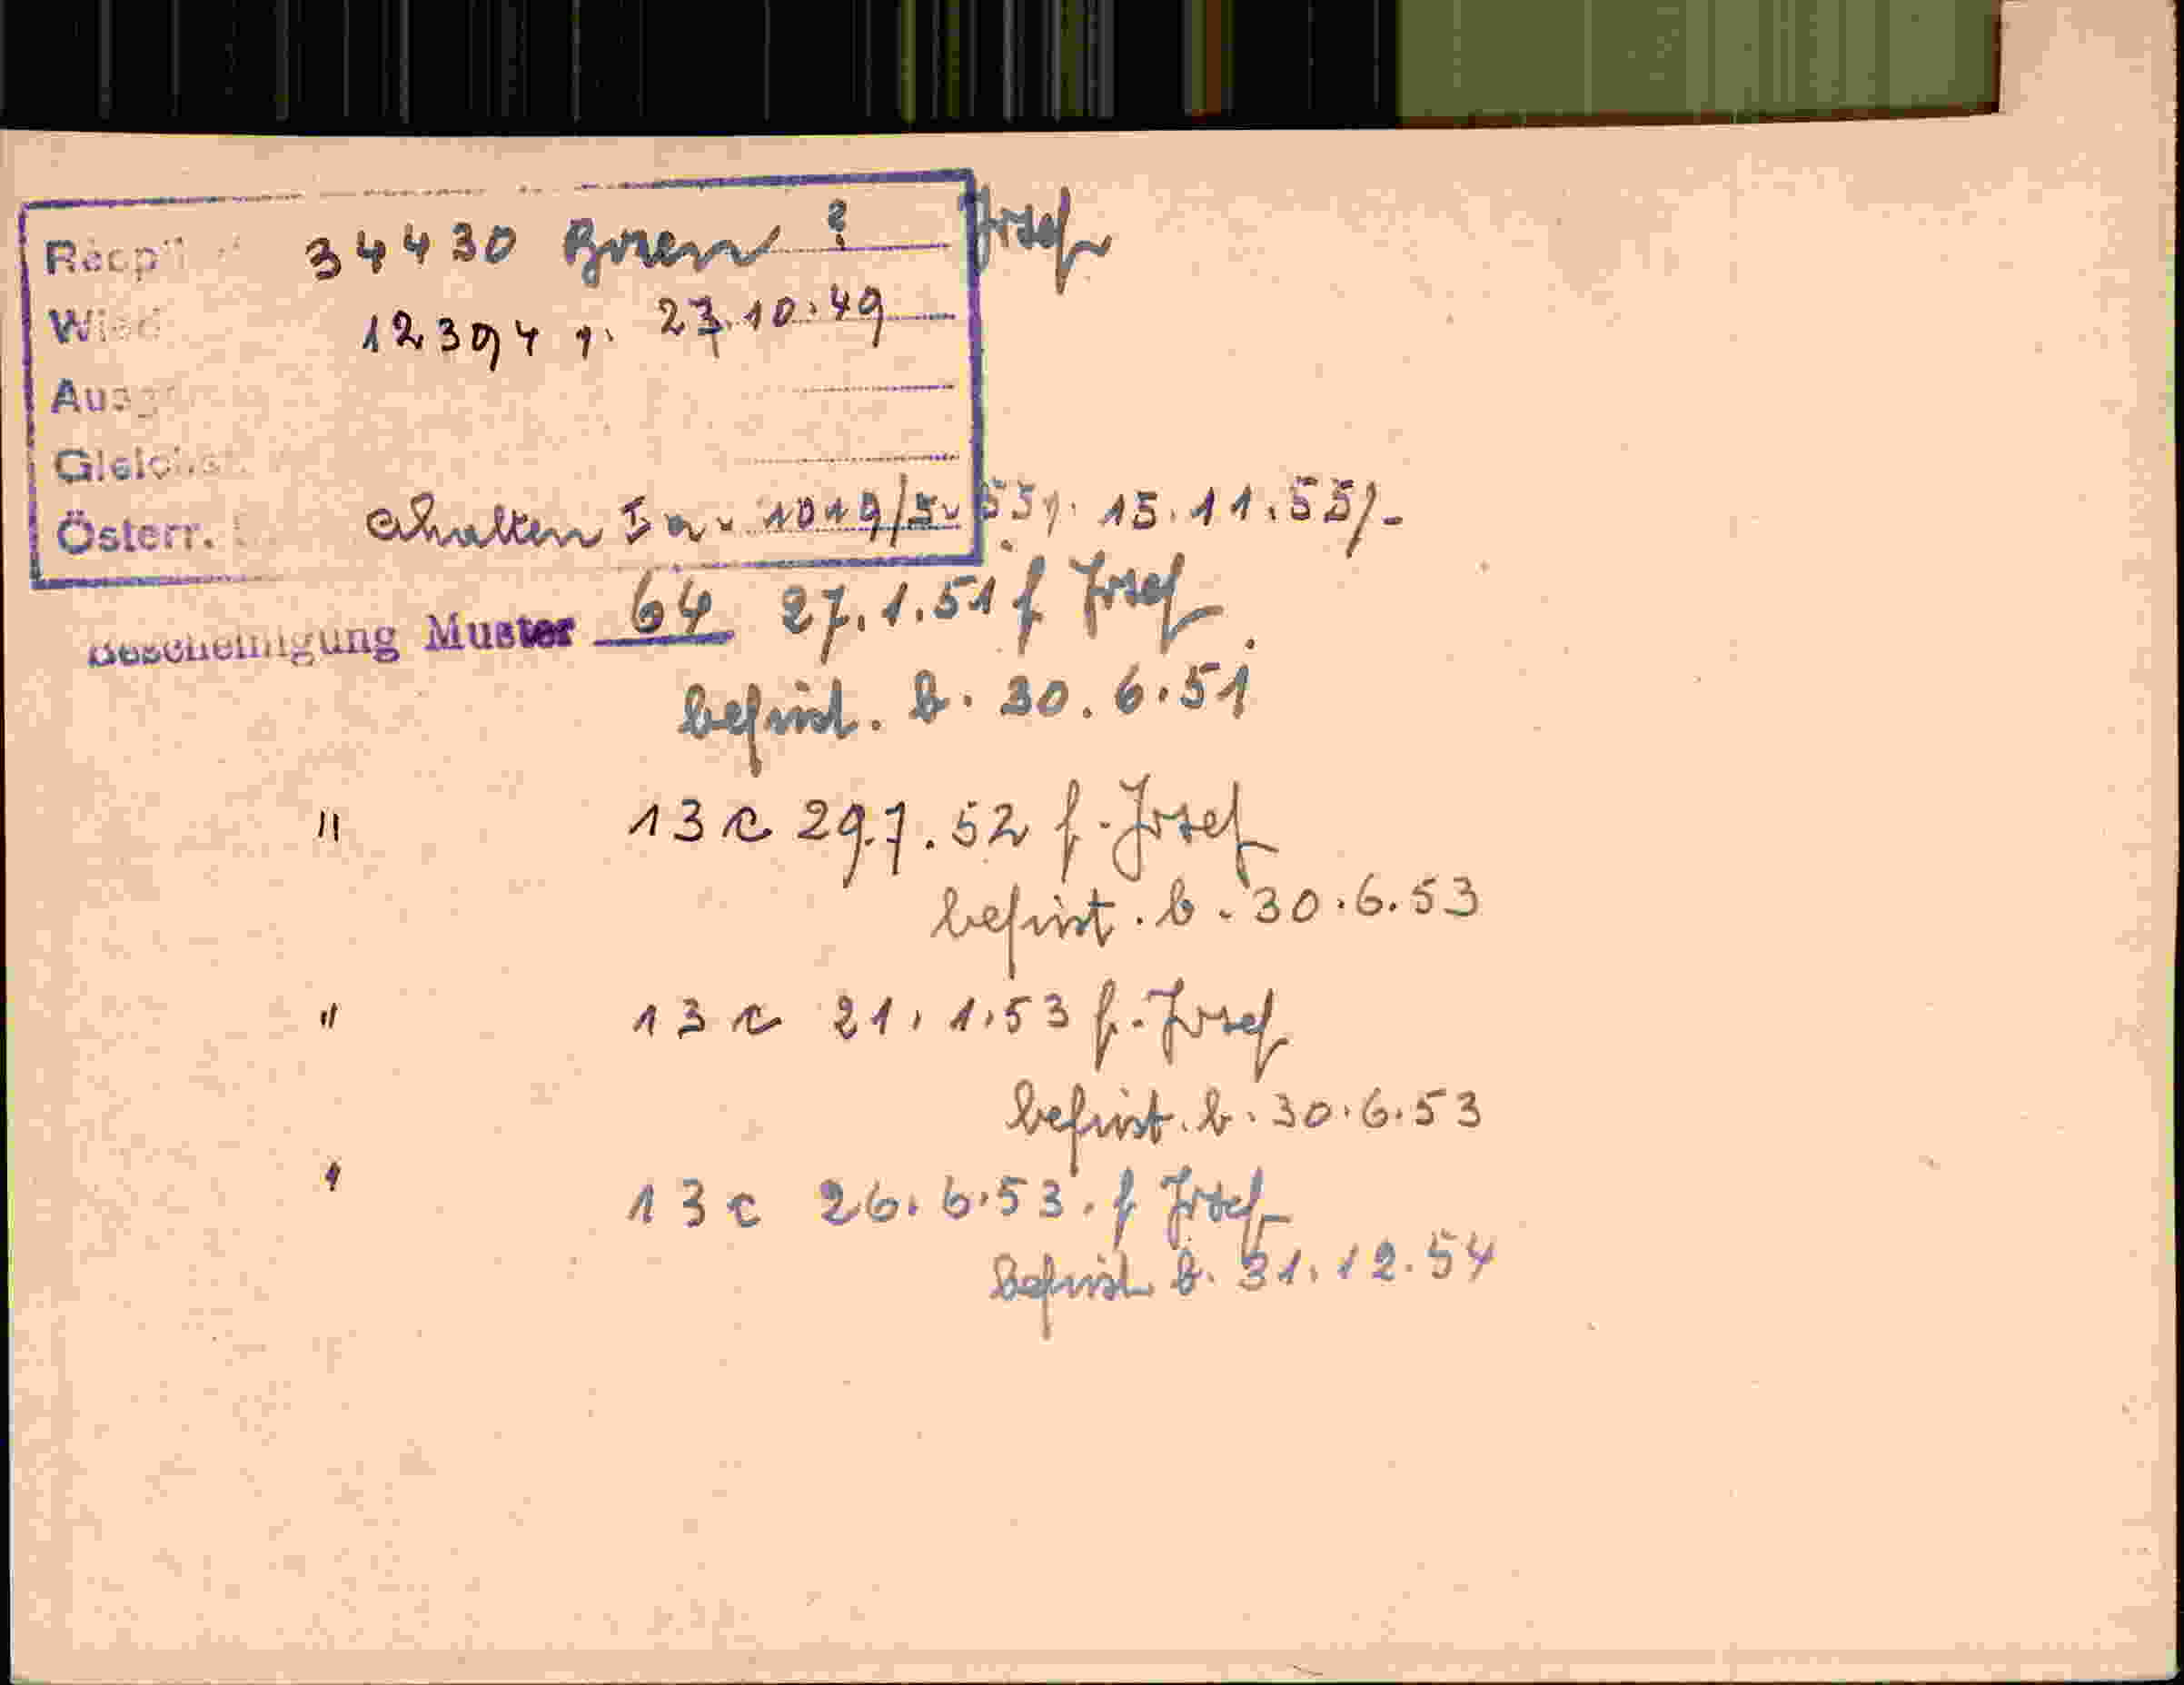 34430 Bozen ? Josef
12394 v. 23.10.49
Österr. erhalten I a. 1019/5. 55 v. 15.11.55/-
Bescheinigung Muster 64 27.1.51 f Josef
befrist. b. 30.6.51
" 13 c 29.7.52 f. Josef
befrist. b. 30.6.53
" 13 c 21.1.53 f. Josef
befrist. b. 30.6.53
" 13 c 26.6.53. f Josef
befrist b. 31.12.54